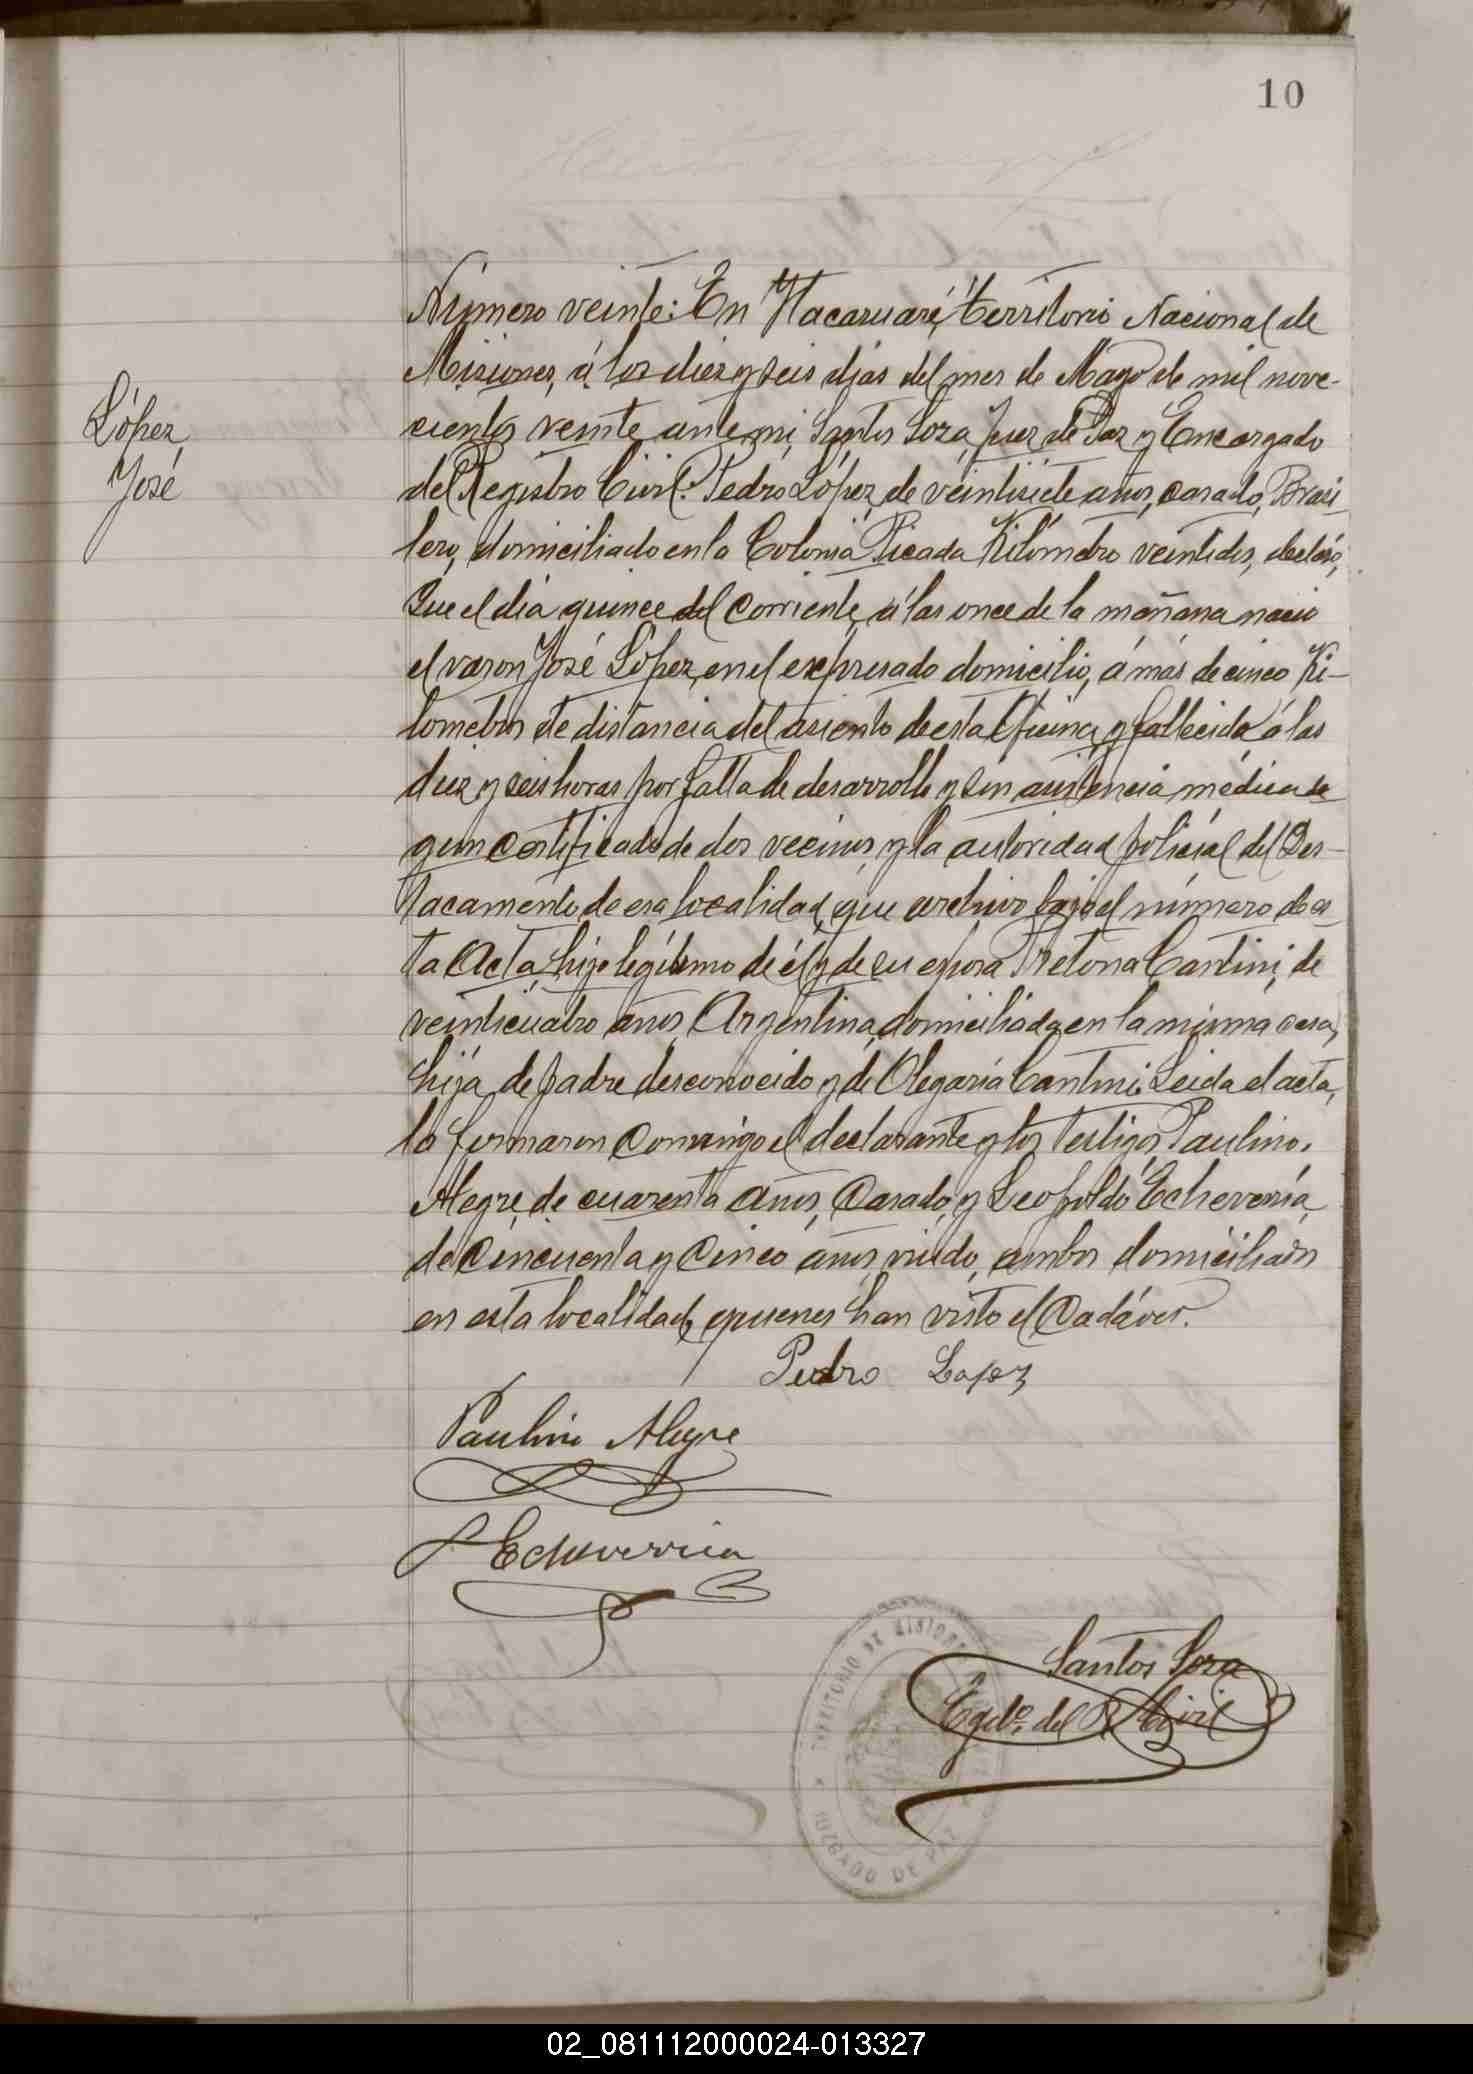 10
López,
José
Número veinte: En Itacaruaré, territorio Nacional de
Misiones, á los diez y seis dias del mes de Mayo de mil nove-
cientos veinte, ante mi, Santos Soza, Juez de Paz y Encargado
del Registro Civil: Pedro López, de veintisiete años, casado, Brasi-
lero, domiciliado en la Colonia Picada Kilómetro veintidos, declaró,
Que el dia quince del corriente, á las once de la mañana nació
el varon José López, en el expresado domicilio, á más de cinco Ki-
lometros de distancia del asiento de esta Oficina, y fallecido á las
diez y seis horas por falta de desarrollo y sin asistencia médica se
gun certificado de dos vecinos, y la autoridad policial del Des-
tacamento de esa localidad, que archivo bajo el número de es
ta Acta, hijo legítimo de él y de su esposa Cantini, de
veinticuatro años, Argentina, domiciliada en la misma casa,
hija de padre desconocido y de Olegaria Cantini. Leida el acta,
la firmaron conmigo el declarante y los testigos, Paulino
Alegre, de cuarenta años, Casado, y Leopoldo Echeverria,
de Cincuenta y Cinco años, viudo, ambos domiciliados
en esta localidad, quienes han visto el Cadáver.
Pedro Lopez
Paulino Alegre
Echeverria
Santos Soza
Egdo. del R. Civil
TERRITORIO DE MISIONES
JUZGADO DE PAZ
02_081112000024-013327